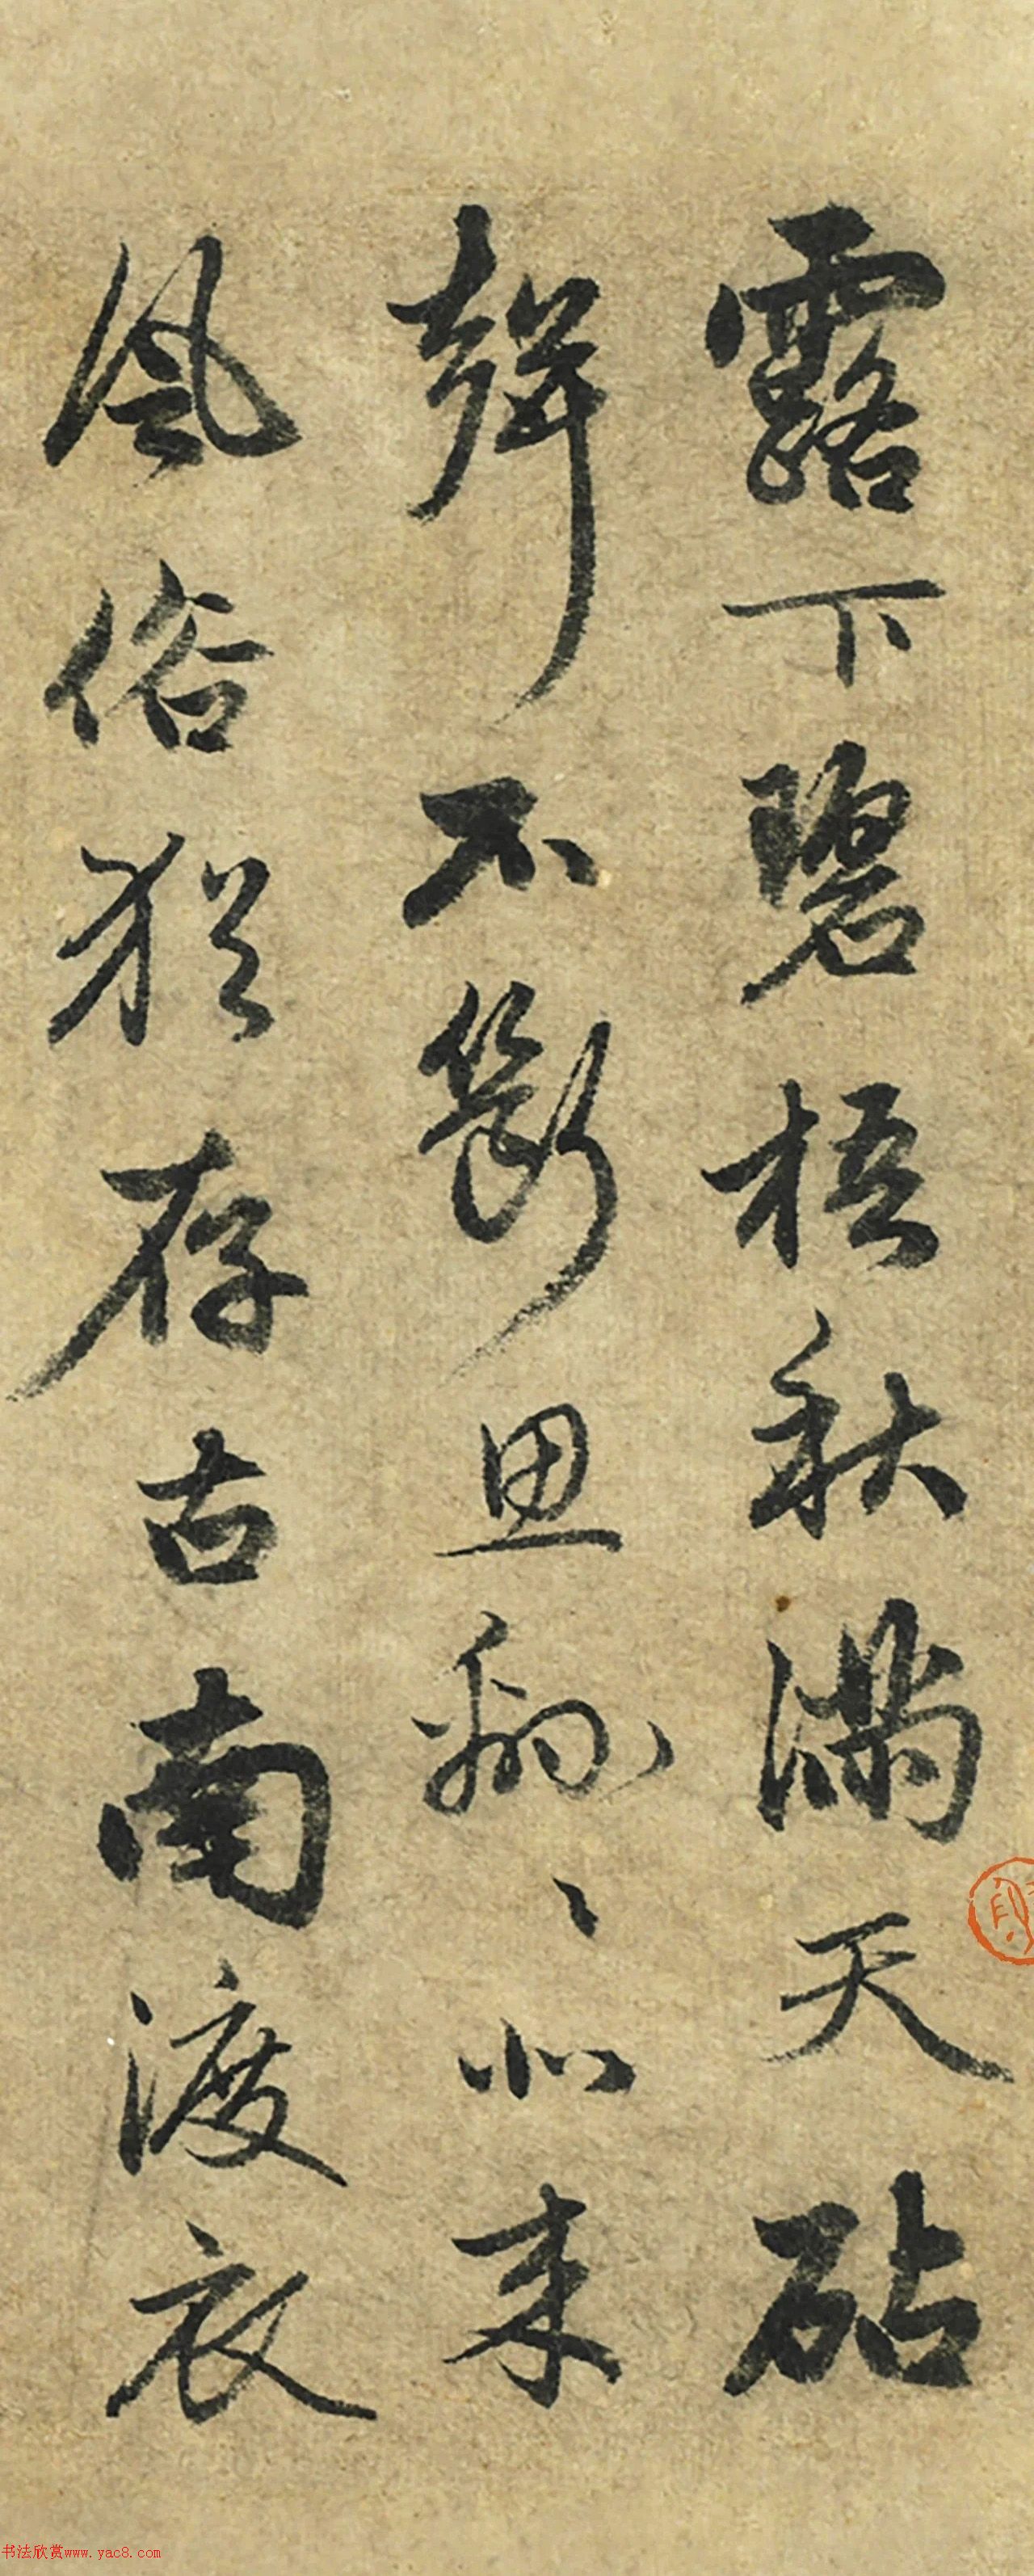 露下碧梧秋滿天砧
聲不斷思綿々北來
風俗猶存古南渡衣
书法欣赏www.yac8.com